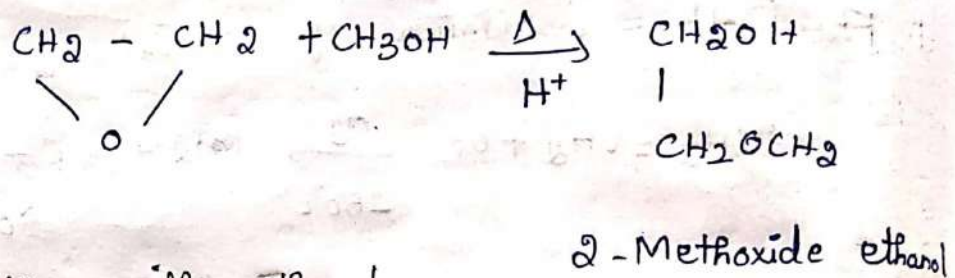 CH2 - CH2 + CH3OH Δ→ CH2OH
\ / H+ |
O CH2OCH2
2-Methoxide ethanol